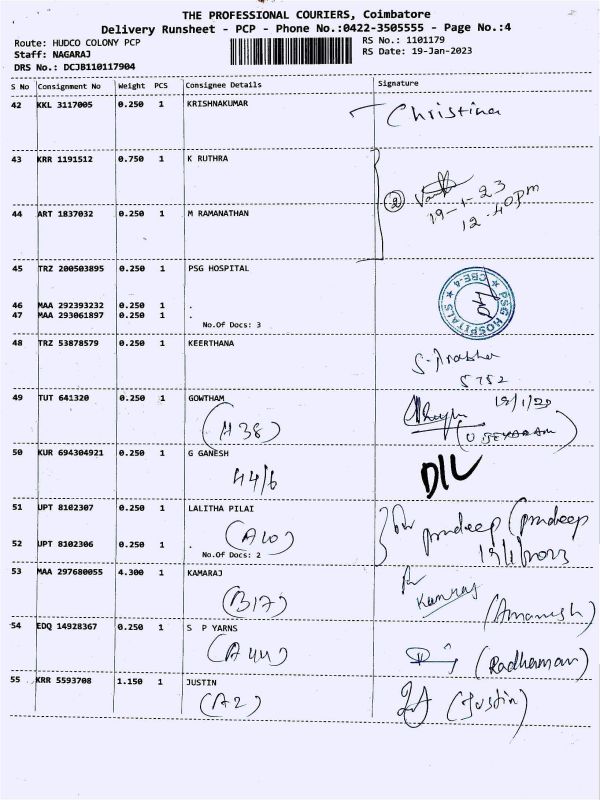 THE PROFESSIONAL COURIERS, Coimbatore
Delivery Runsheet - PCP - Phone No.:0422-3505555 - Page No.:4
Route: HUDCO COLONY PCP
RS No.: 1101179
Staff: NAGARAJ
RS Date: 19-Jan-2023
DRS No.: DCJB110117904
S No Consignment No Weight PCS Consignee Details Signature
42 KKL 3117005 0.250 1 KRISHNAKUMAR Christina
43 KRR 1191512 0.750 1 K RUTHRA
② 19-1-23
12.40pm
44 ART 1837032 0.250 1 M RAMANATHAN
45 TRZ 200503895 0.250 1 PSG HOSPITAL
PSG HOSPITALS ★ CBE-4 ★
46 MAA 292393232 0.250 1 .
47 MAA 293061897 0.250 1 .
No.Of Docs: 3
48 TRZ 53878579 0.250 1 KEERTHANA
S. Prabha
5752
49 TUT 641320 0.250 1 GOWTHAM
(A 38)
50 KUR 694304921 0.250 1 G GANESH
44/6 DIL
51 UPT 8102307 0.250 1 LALITHA PILAI
(A10) pradeep (pradeep
52 UPT 8102306 0.250 1 .
No.Of Docs: 2
19/1/2023
53 MAA 297680055 4.300 1 KAMARAJ
(B17) Kamraj
(Amanish)
54 EDQ 14928367 0.250 1 S P YARNS
(A44) (Radhamani)
55 KRR 5593708 1.150 1 JUSTIN
(A2) (Justin)